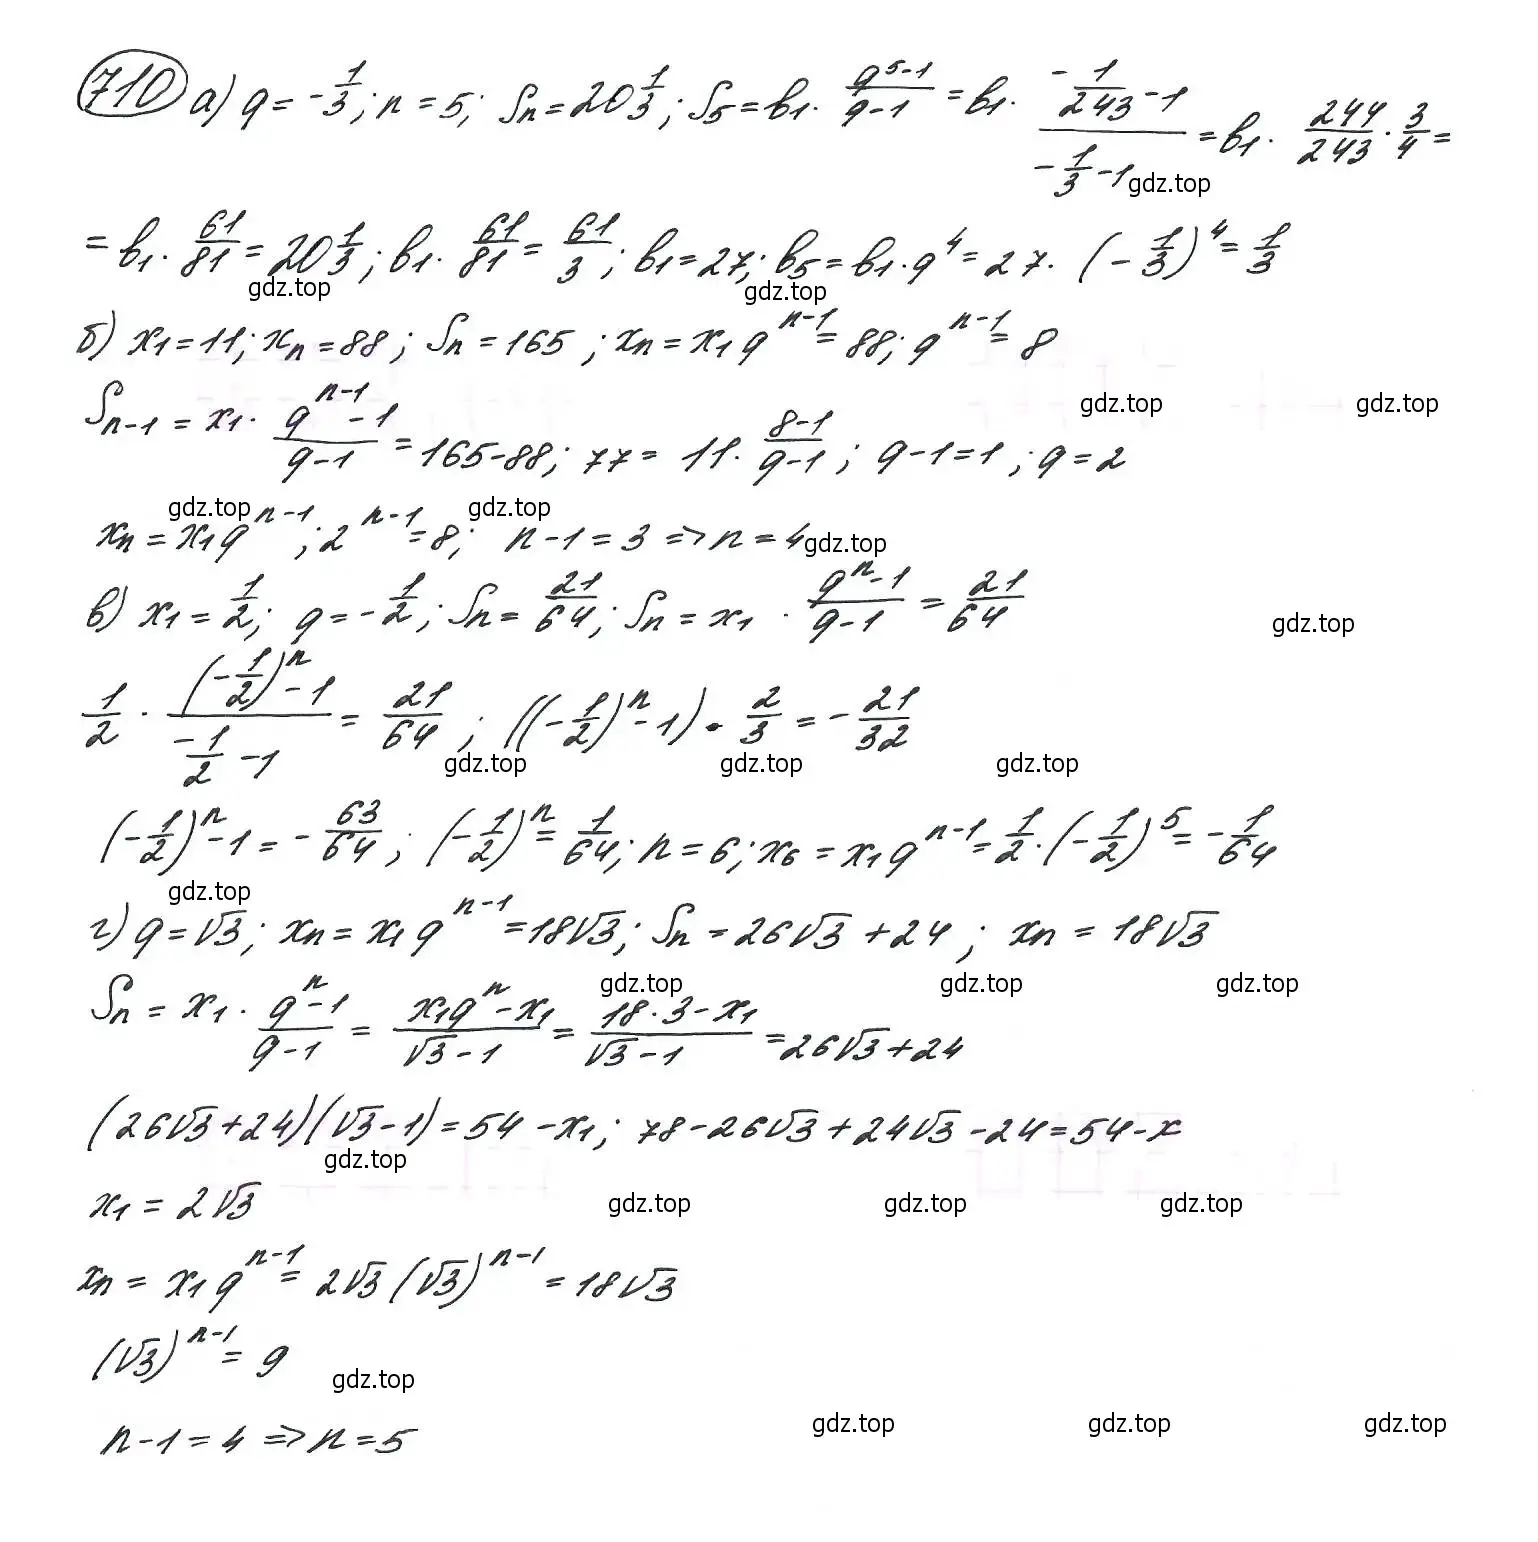 710 а) q = -1/3; n = 5; Sn = 20 1/3; S5 = b1 · (q^5-1)/(q-1) = b1 · (-1/243 - 1)/(-1/3 - 1) = b1 · 244/243 · 3/4 =
gdz.top
= b1 · 61/81 = 20 1/3; b1 · 61/81 = 61/3; b1 = 27; b5 = b1 · q^4 = 27 · (-1/3)^4 = 1/3
gdz.top gdz.top
б) x1 = 11; xn = 88; Sn = 165; xn = x1 q^(n-1) = 88; q^(n-1) = 8
gdz.top gdz.top
S_(n-1) = x1 · (q^(n-1) - 1)/(q-1) = 165-88; 77 = 11 · (8-1)/(q-1); q-1 = 1; q = 2
gdz.top gdz.top
xn = x1 q^(n-1); 2^(n-1) = 8; n-1 = 3 => n = 4
gdz.top
в) x1 = 1/2; q = -1/2; Sn = 21/64; Sn = x1 · (q^n - 1)/(q-1) = 21/64
gdz.top
1/2 · ((-1/2)^n - 1)/(-1/2 - 1) = 21/64; ((-1/2)^n - 1) · 2/3 = -21/32
gdz.top gdz.top gdz.top
(-1/2)^n - 1 = -63/64; (-1/2)^n = 1/64; n = 6; x6 = x1 q^(n-1) = 1/2 · (-1/2)^5 = -1/64
gdz.top
г) q = √3; xn = x1 q^(n-1) = 18√3; Sn = 26√3 + 24; xn = 18√3
gdz.top gdz.top gdz.top
Sn = x1 · (q^n - 1)/(q-1) = (x1 q^n - x1)/(√3 - 1) = (18·3 - x1)/(√3 - 1) = 26√3 + 24
(26√3 + 24)(√3 - 1) = 54 - x1; 78 - 26√3 + 24√3 - 24 = 54 - x
gdz.top
x1 = 2√3
gdz.top gdz.top gdz.top
xn = x1 q^(n-1) = 2√3 (√3)^(n-1) = 18√3
(√3)^(n-1) = 9
gdz.top
n-1 = 4 => n = 5
gdz.top gdz.top gdz.top